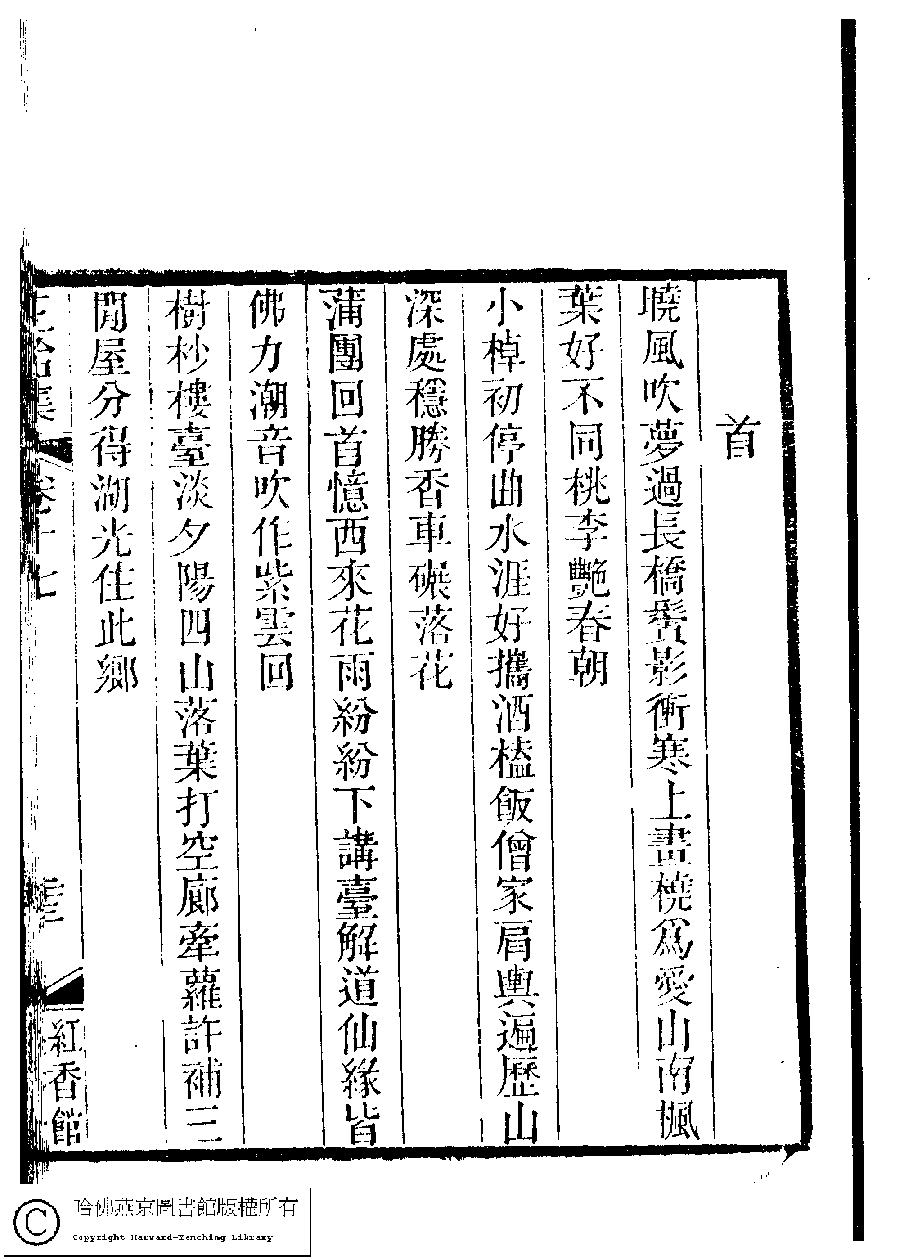 首
曉風吹夢過長橋鬢影衝寒上畫橈爲愛山南楓
葉好不同桃李艷春朝
小棹初停曲水涯好攜酒榼飯僧家肩輿遍歷山
深處穩勝香車碾落花
蒲團回首憶西來花雨紛紛下講臺解道仙緣皆
佛力潮音吹作紫雲回
樹杪樓臺淡夕陽四山落葉打空廊牽蘿許補三
閒屋分得湖光住此鄉
卷十七
紅香館
哈佛燕京圖書館版權所有
Copyright Harvard-Yenching Library